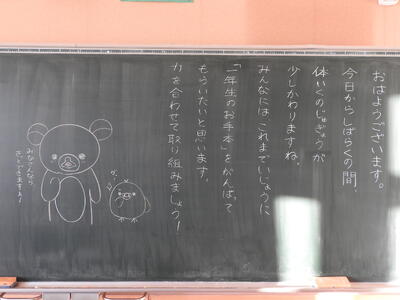 おはようございます。
今日からしばらくの間、
体いくのじゅぎょうが
少しかわりますね。
みんなには、これまでいじょうに
「一年生のお手本」をがんばって
もらいたいと思います。
力を合わせて取り組みましょう!
みなさんなら
きっとできますよ!